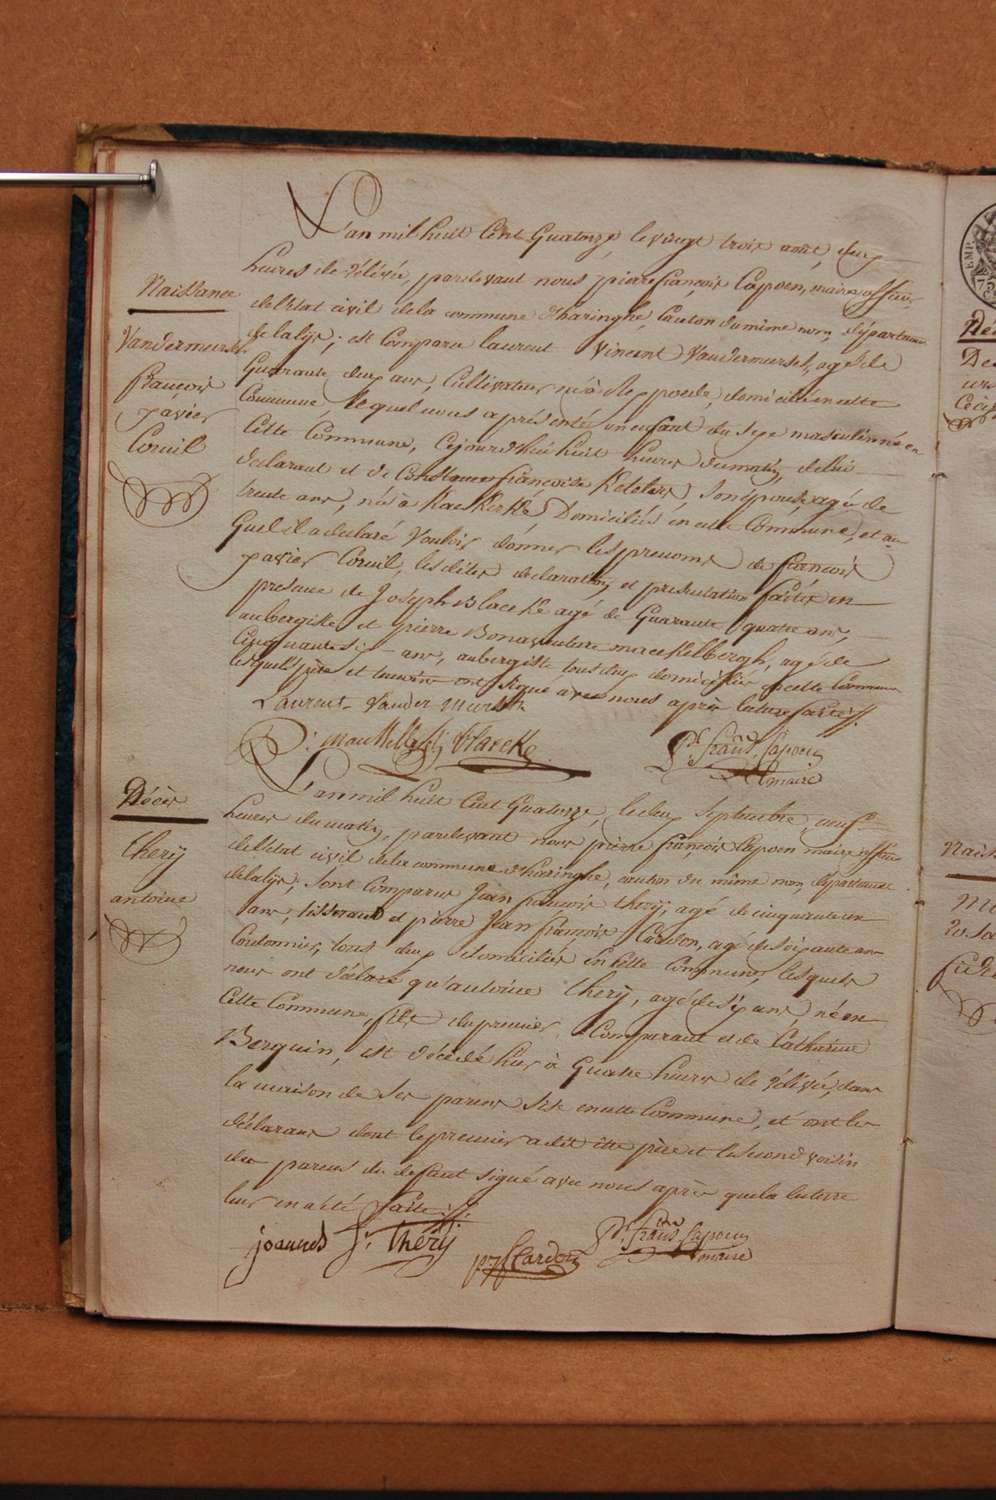 L'an mil huit Cent Quatorze, le vingt trois août, deux
heures de rélévée, pardevant nous pierre françois Capoen, maire officier
de l'état civil de la commune d'haringhe, Canton du même nom, département
de la lys; est Comparu laurent Vincent Vandermeersch, agé de
Quarante deux ans, Cultivateur né à Rexpoede, domicilié en cette
Commune, lequel nous a présenté un enfant du sexe masculin né en
Cette Commune, Cejourd'hui huit heures du matin, de lui
déclarant et de Constance francoise Ketelaers, son épouse, agée de
trente ans, née à Domiciliés en cette Commune, et au
Quel il a déclaré Vouloir donner les prenoms de francois
xavier Corneil, les dites declaration et présentation faites en
présence de Joseph Blaecke agé de Quarante quatre ans,
aubergiste et pierre Bonaventure maeckelbergh, agé de
Cinquante six ans, aubergiste tous deux domiciliés en cette Commune
lesquels père et temoins ont signé avec nous après lecture faite ./.
Naissance
Vandermeersch
françois
xavier
Corneil
Laurent Vander Mersch
P. Blaecke
Pr. françs. Capoen
maire
L'an mil huit Cent Quatorze, le deux Septembre, neuf
heures du matin, pardevant nous pierre françois Capoen maire officier
de l'état civil de la commune d'haringhe, canton du même nom, département
de la lys, sont Comparus Jean francois thery, agé de cinquante un
ans, tisserand et pierre Jean francois Cardon, agé de soixante ans
Cordonnier, tous deux domiciliés en cette Commune, lesquels
nous ont déclaré qu'antoine thery, agé de six ans né en
cette Commune fils du premier Comparant et de Catherine
Berquin, est décédé hier à Quatre heures de rélévée, dans
la maison de ses parens sise en cette Commune, et ont les
déclarans dont le premier a dit être père et le second voisin
des parens du defunt signé avec nous après que la lecture
leur en a été faite ./.
Décès
thery
antoine
joannes fr. thery
pj f Cardon
Pr. françs. Capoen
maire